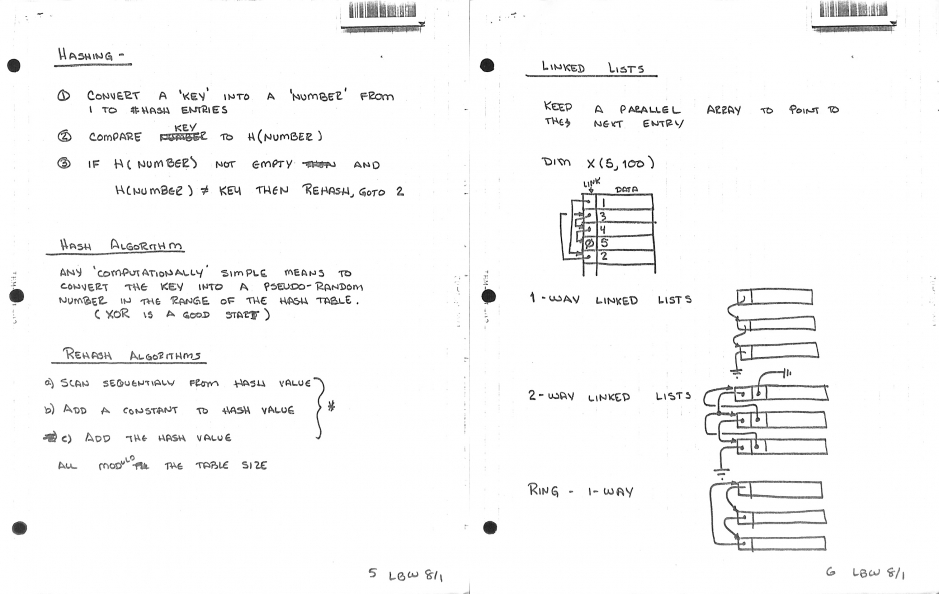 HASHING -
① CONVERT A 'KEY' INTO A 'NUMBER' FROM
1 TO # HASH ENTRIES
② COMPARE KEY TO H(NUMBER)
③ IF H(NUMBER) NOT EMPTY AND
H(NUMBER) ≠ KEY THEN REHASH, GOTO 2
HASH ALGORITHM
ANY 'COMPUTATIONALLY' SIMPLE MEANS TO
CONVERT THE KEY INTO A PSEUDO-RANDOM
NUMBER IN THE RANGE OF THE HASH TABLE.
(XOR IS A GOOD START)
REHASH ALGORITHMS
a) SCAN SEQUENTIALY FROM HASH VALUE
b) ADD A CONSTANT TO HASH VALUE
c) ADD THE HASH VALUE
*
ALL MODULO THE TABLE SIZE
5 LBW 8/1
LINKED LISTS
KEEP A PARALLEL ARRAY TO POINT TO
THE NEXT ENTRY
DIM X(5,100)
LINK DATA
1
3
4
Ø 5
2
1-WAY LINKED LISTS
2-WAY LINKED LISTS
RING - 1-WAY
6 LBW 8/1